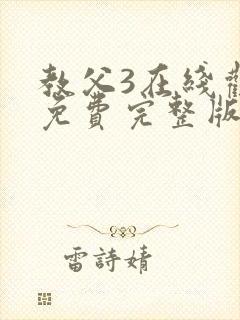 教父3在綫觀
免費完整版
雷詩婧